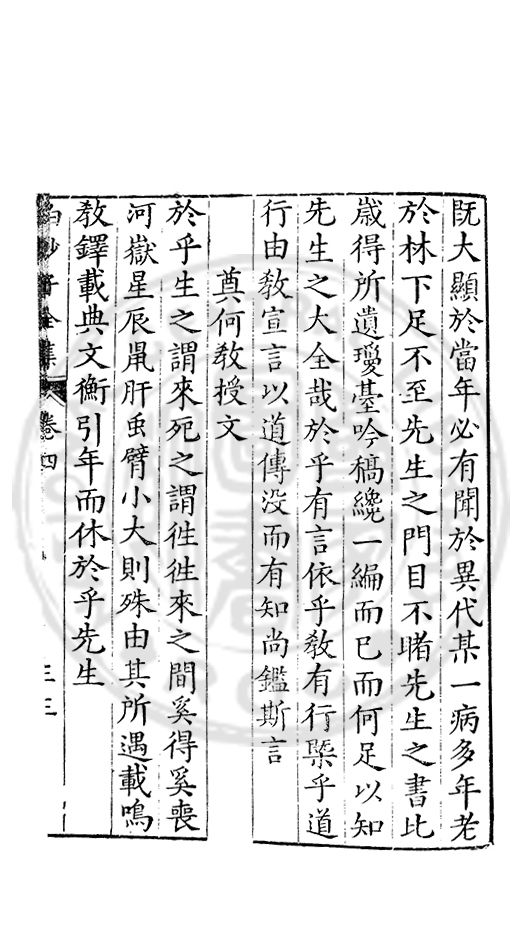 旣大顯於當年必有聞於異代某一病多年老
於林下足不至先生之門目不睹先生之書比
歲得所遺瓊臺吟稿纔一編而已而何足以知
先生之大全哉於乎有言依乎敎有行槩乎道
行由敎宣言以道傳没而有知尚鑑斯言
奠何敎授文
於乎生之謂來死之謂徃徃來之間奚得奚喪
河嶽星辰鼠肝虫臂小大則殊由其所遇載鳴
敎鐸載典文衡引年而休於乎先生
白沙子全集
卷四
三三